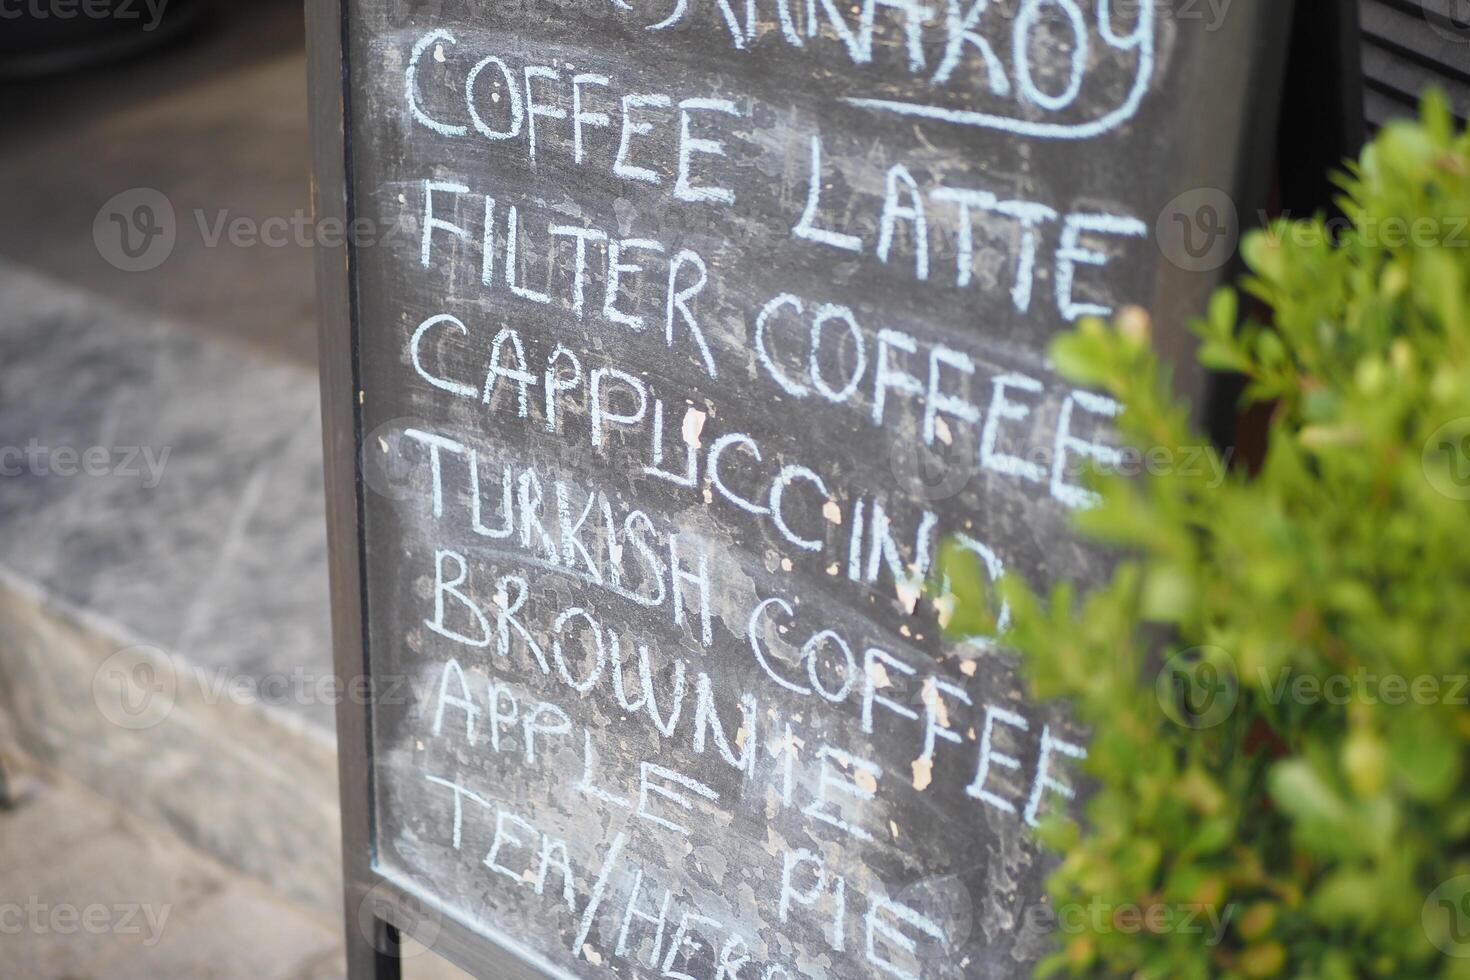 COFFEE LATTE
FILTER COFFEE
CAPPUCCINO
TURKISH COFFEE
BROWNIE
APPLE PIE
TEA/HER